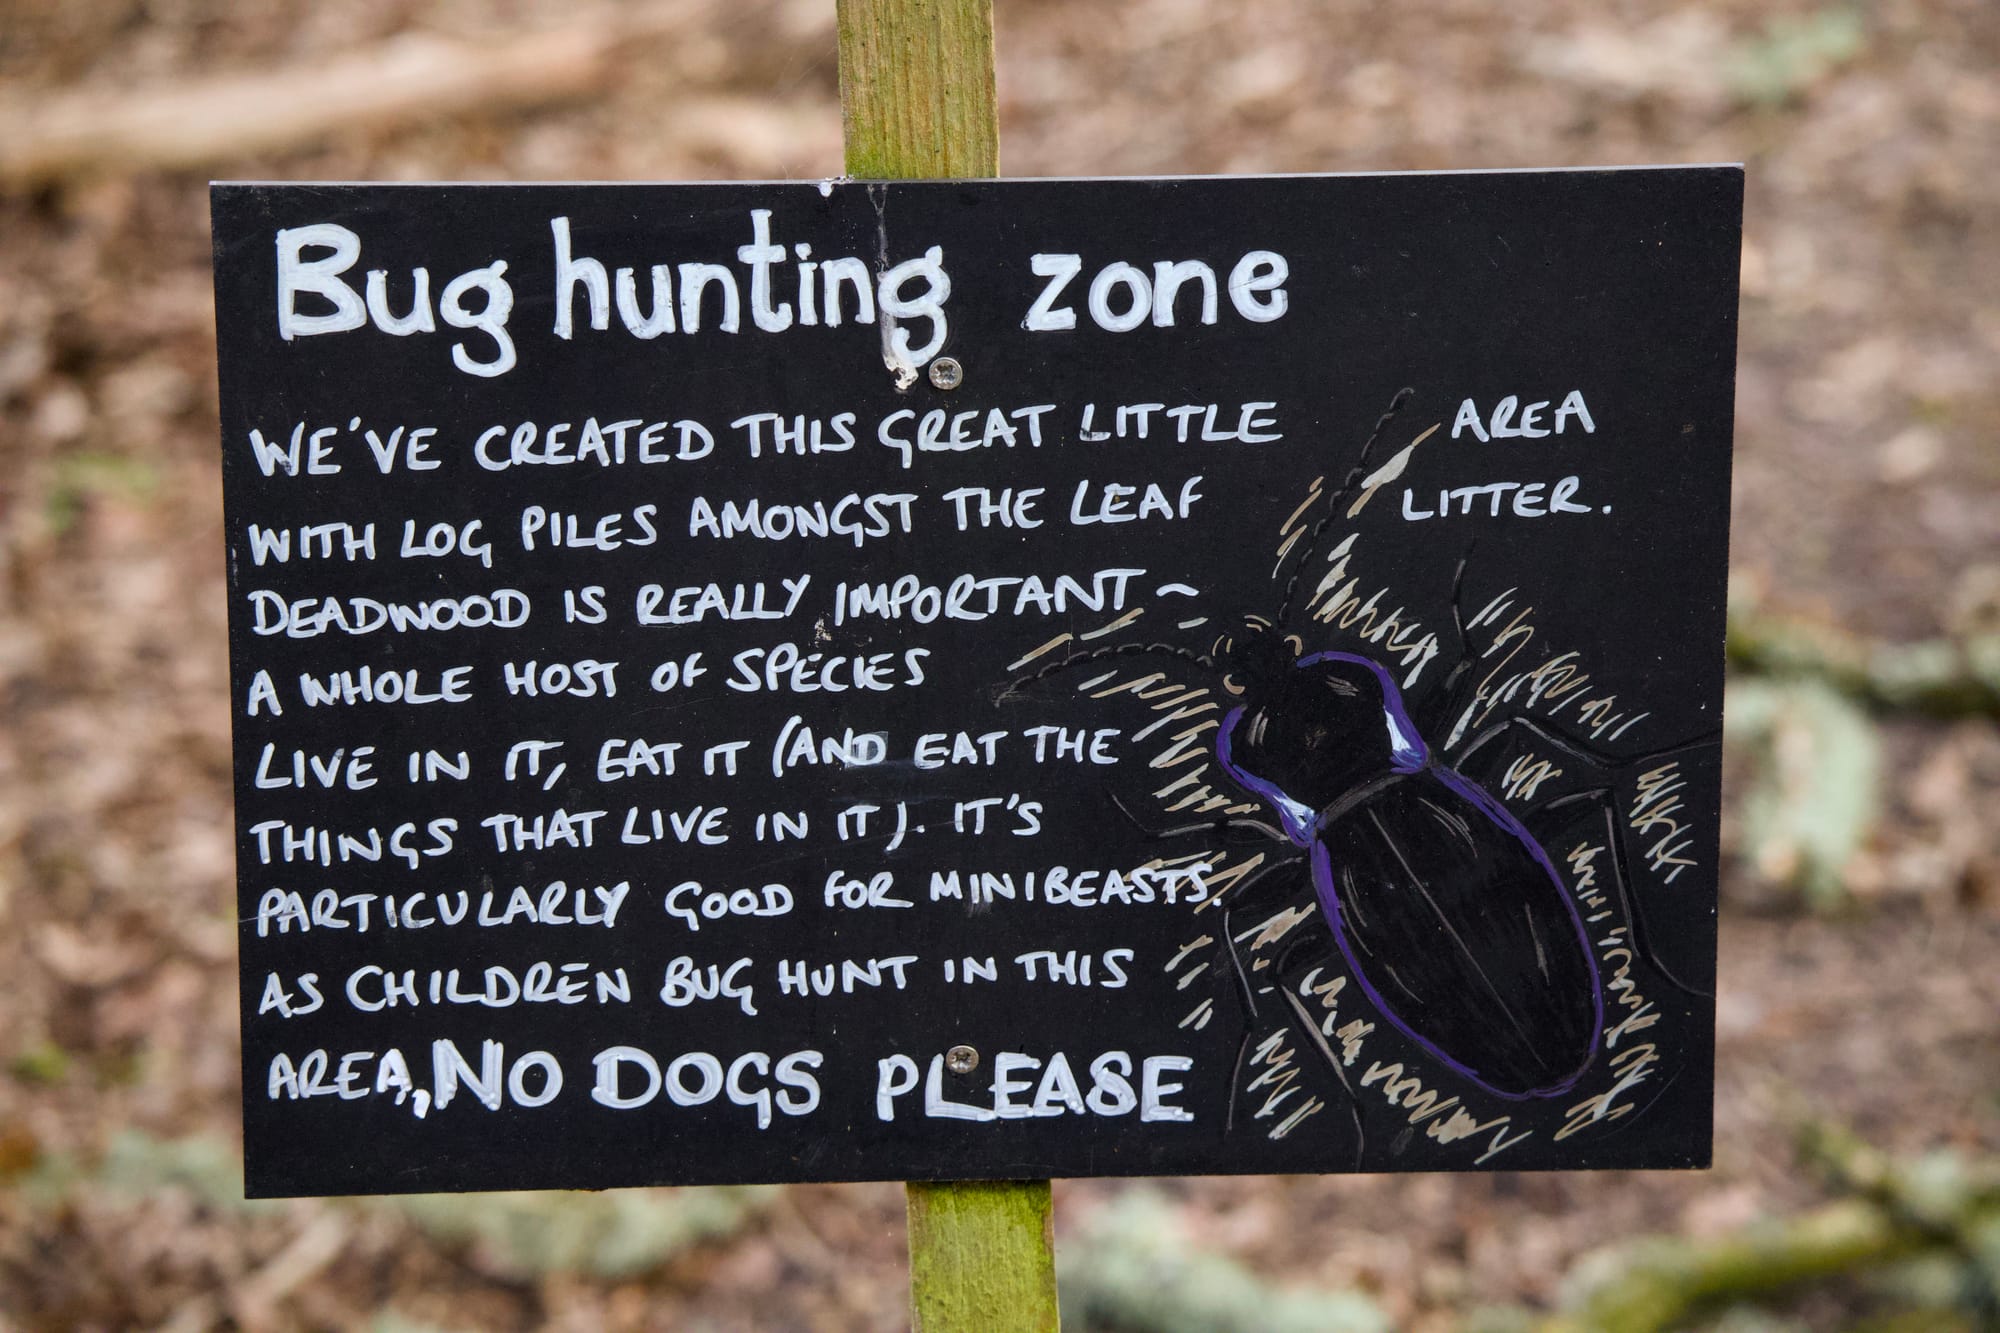 Bug hunting zone
WE'VE CREATED THIS GREAT LITTLE AREA
WITH LOG PILES AMONGST THE LEAF LITTER.
DEADWOOD IS REALLY IMPORTANT ~
A WHOLE HOST OF SPECIES
LIVE IN IT, EAT IT (AND EAT THE
THINGS THAT LIVE IN IT). IT'S
PARTICULARLY GOOD FOR MINIBEASTS.
AS CHILDREN BUG HUNT IN THIS
AREA, NO DOGS PLEASE